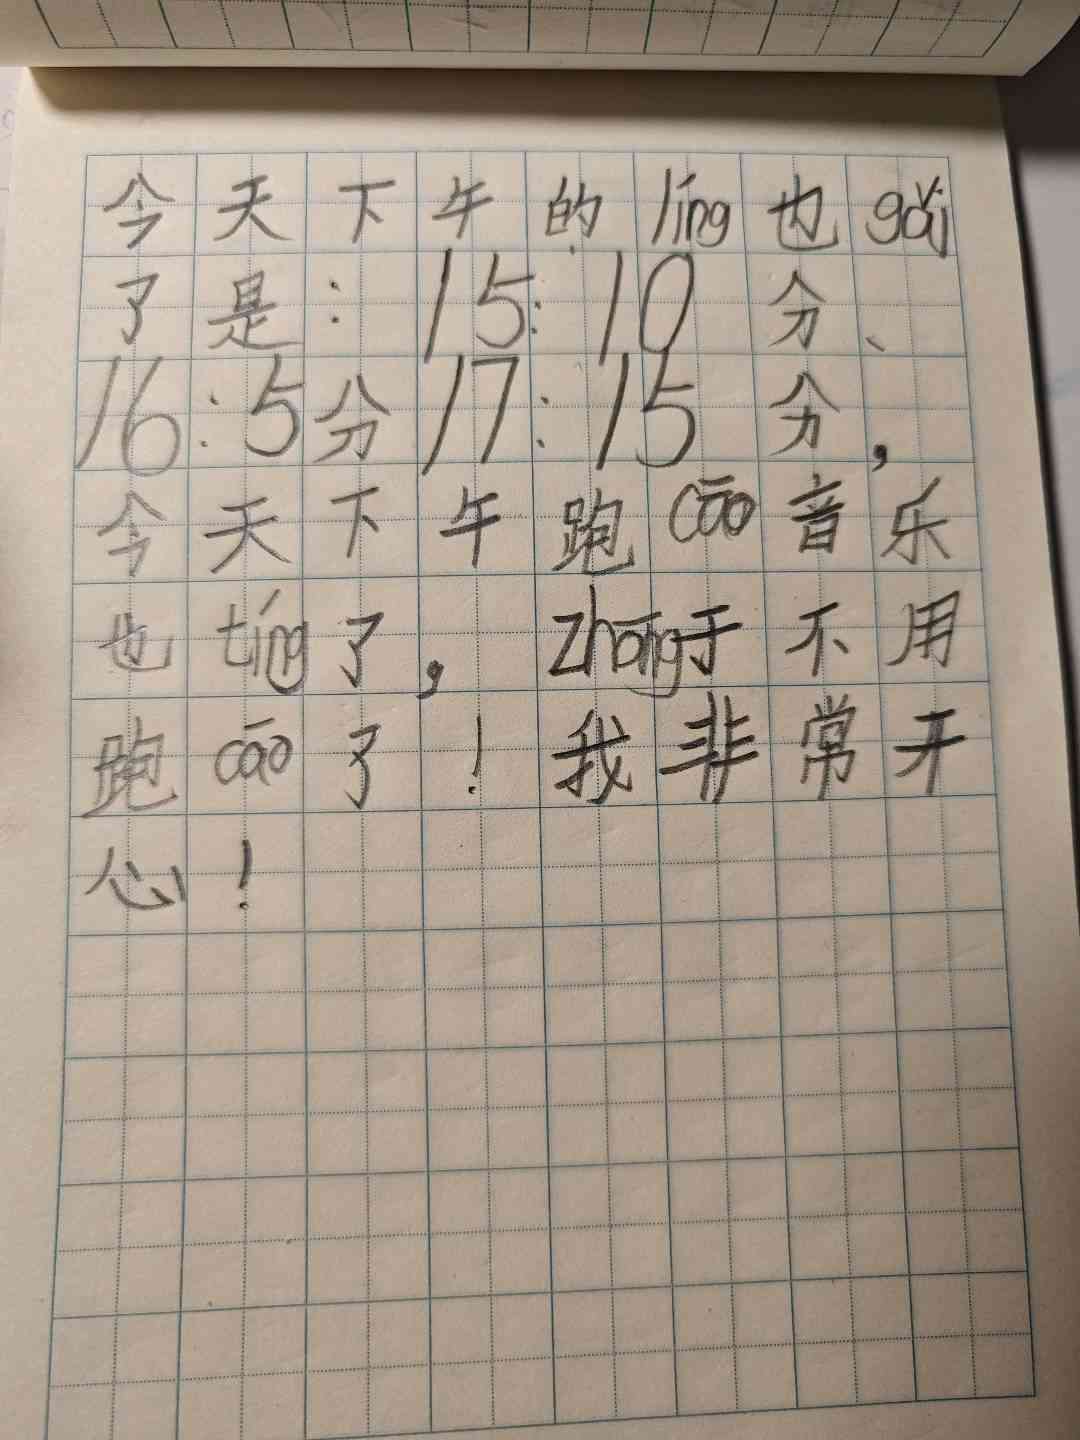 今天下午的líng也gǎi
了是：15：10分、
16：5分17：15分，
今天下午跑cāo音乐
也tíng了，zhōng于不用
跑cāo了！我非常开
心！